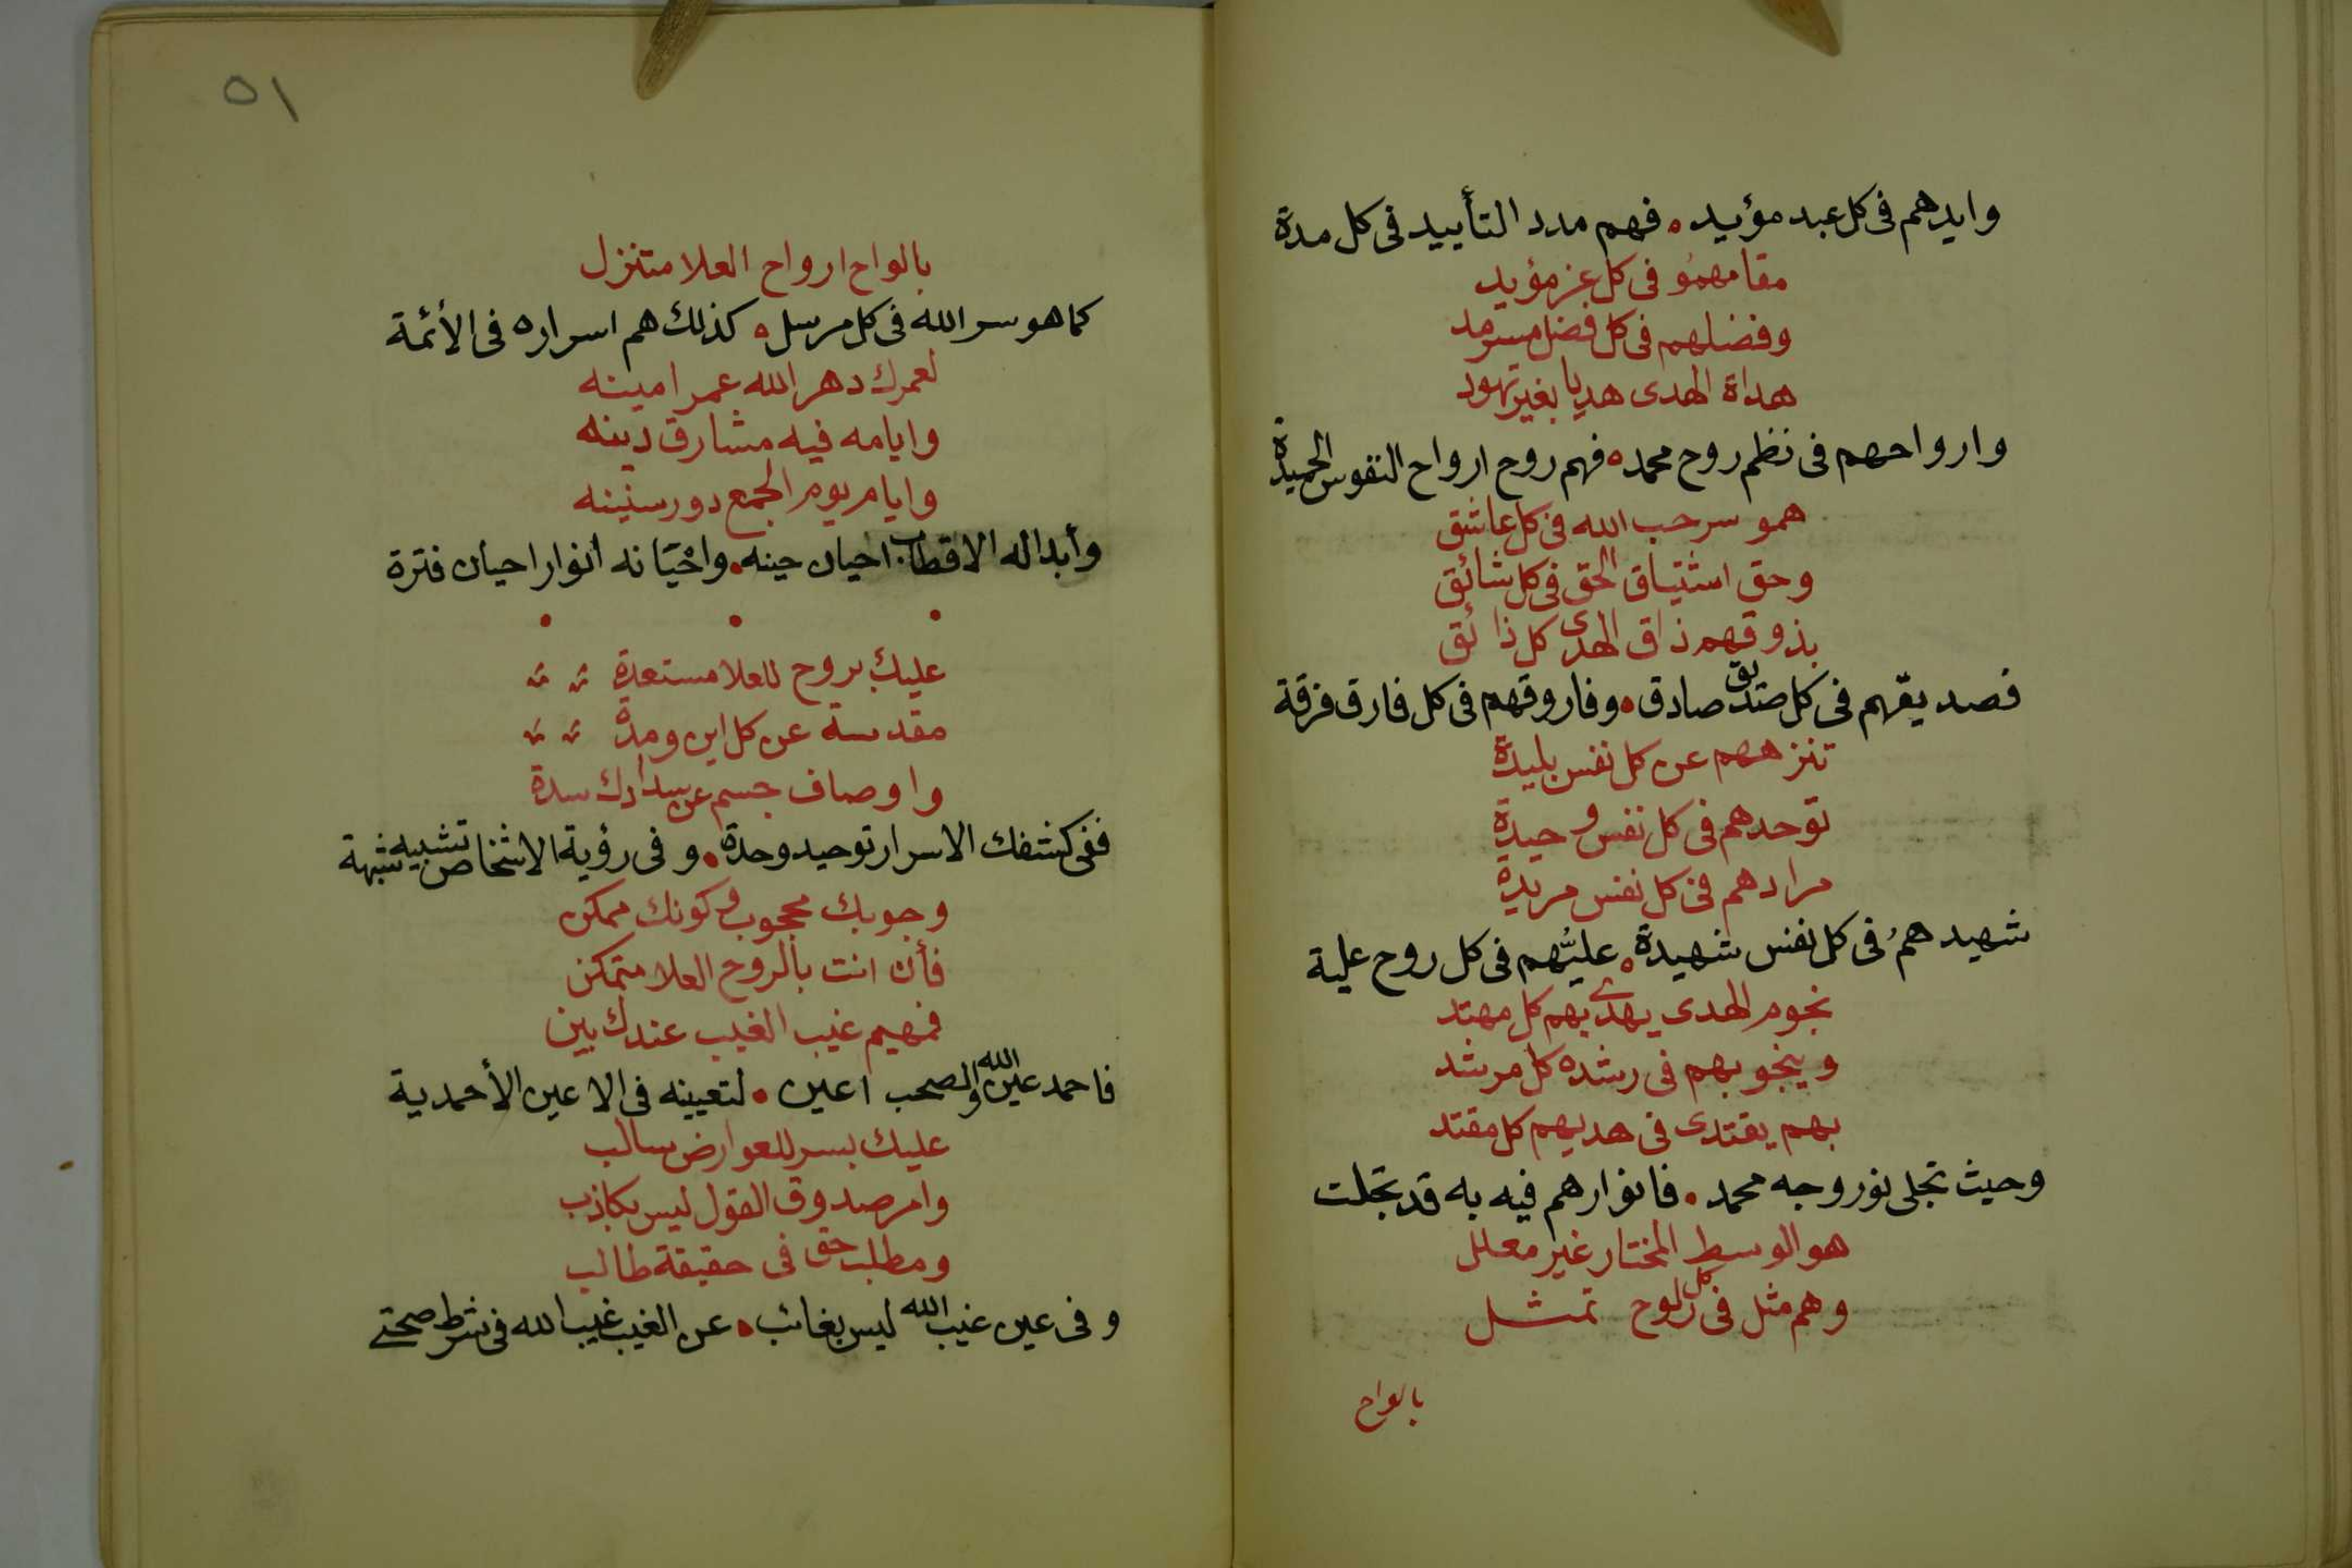 وايدهم فى كل عبد مؤيد • فهم مدد التأييد فى كل مدة
مقامهمُو فى كل عز مؤيد
وفضلهم فى كل فضل مسرمد
هداة الهدى هديا بغير تهود
وارواحهم فى نظم روح محمد • فهم روح ارواح النفوس الحميدة
همو سر حب الله فى كل عاشق
وحق اشتياق الحق فى كل شائق
بذوقهم ذاق الهدى كل ذائق
فصديقهم فى كل صديق صادق • وفاروقهم فى كل فارق فرقة
تنزههم عن كل نفس بليدة
توحدهم فى كل نفس وحيدة
مرادهم فى كل نفس مريدة
شهيدهمُ فى كل نفس شهيدة • عليُّهم فى كل روح علية
نجوم الهدى يهدى بهم كل مهتد
وينجو بهم فى رشده كل مرشد
بهم يقتدى فى هديهم كل مقتد
وحيث تجلى نور وجه محمد • فانوارهم فيه به قد تجلت
هو الوسط المختار غير معلل
وهم مثل فى كل لوح تمثل
بالواح
٥١
بالواح ارواح العلا متنزل
كما هو سر الله فى كل مرسل • كذلك هم اسراره فى الأئمة
لعمرك دهر الله عمر امينه
وايامه فيه مشارق دينه
وايام يوم الجمع دور سنينه
وأبداله الاقطاب احيان حينه • واحيانه انوار احيان فترة
عليك بروح للعلا مستعدة
مقدسة عن كل اين ومدة
واوصاف جسم عن سدادك سدة
ففى كشفك الاسرار توحيد وحدة • وفى رؤية الاشخاص تشبيه شبهة
وجوبك محجوب وكونك ممكن
فأن انت بالروح العلا متمكن
فمهيم غيب الغيب عندك بين
فاحمد عين الله والصحب اعين • لتعيينه فى الاعين الأحمدية
عليك بسر للعوارض سالب
وامر صدوق القول ليس بكاذب
ومطلب حق فى حقيقة طالب
وفى عين غيب الله ليس بغائب • عن الغيب غيب الله فى شرط صحتى